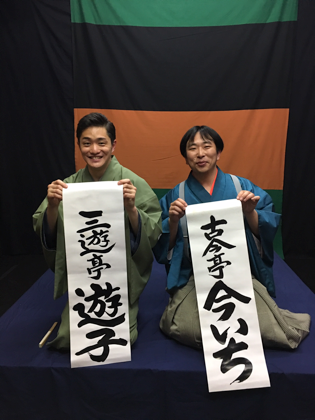 三遊亭遊子
古今亭今いち